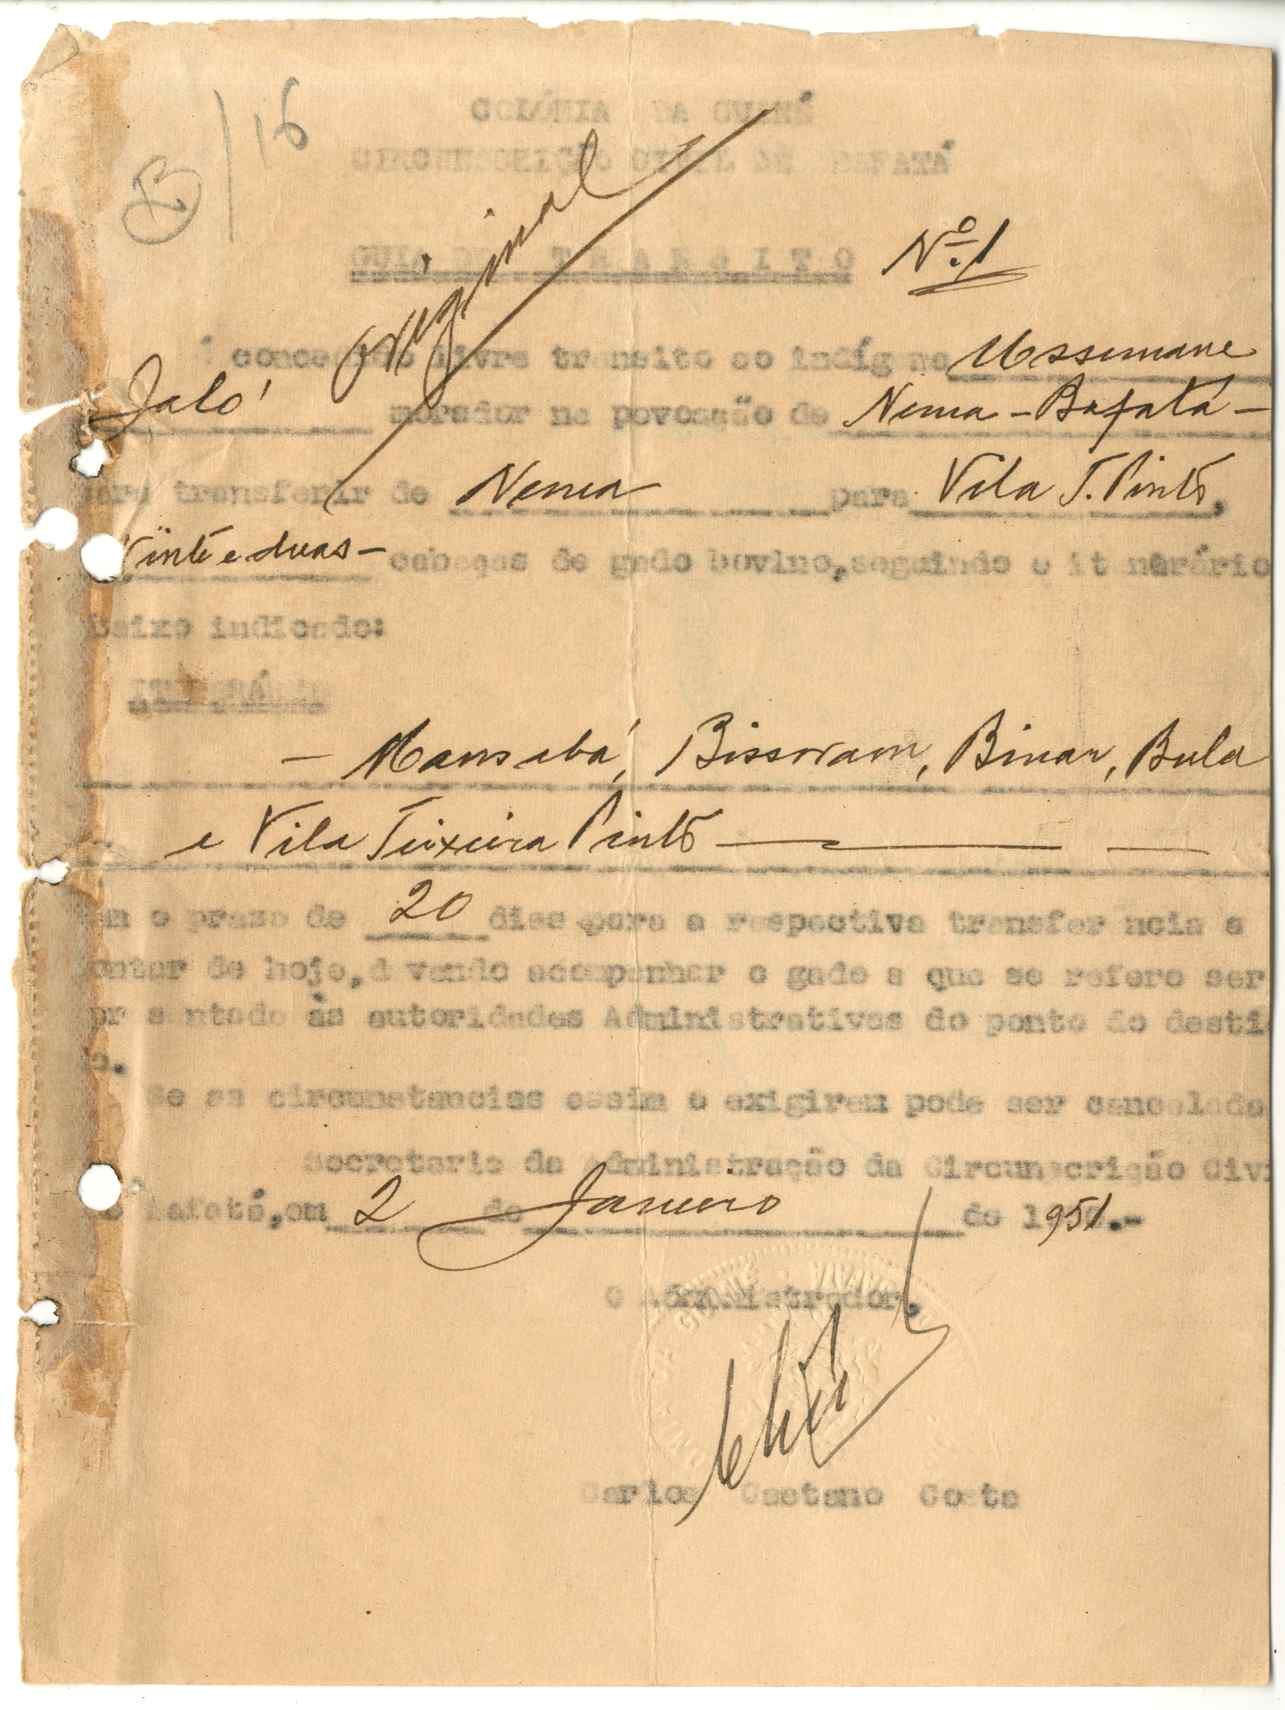 B/16
COLÓNIA DA GUINÉ
CIRCUNSCRIÇÃO CIVIL DE BAFATÁ
Original
GUIA DE TRANSITO Nº.1
É concedido livre transito ao indíg na Ussumane
Jaló morador na povoação de Nema-Bafatá-
para transferir de Nema para Vila T. Pinto,
Vinte e duas- cabeças de gado bovino,seguindo o it nerário
abaixo indicado:
ITENERÁRIO
- Mansabá, Bissoram, Binar, Bula
e Vila Teixeira Pinto
em o prazo de 20 dias para a respectiva transfer ncia a
contar de hoje,d vendo acompanhar o gado a que se refere ser
apr sentado às autoridades Administrativas do ponto do desti
no.
Se as circunstancias assim o exigirem pode ser cancelada
Secretaria da Administração da Circunscrição Civi
de Bafatá,em 2 de Janeiro de 1951.-
O Administrador,
Carlos Caetano Costa